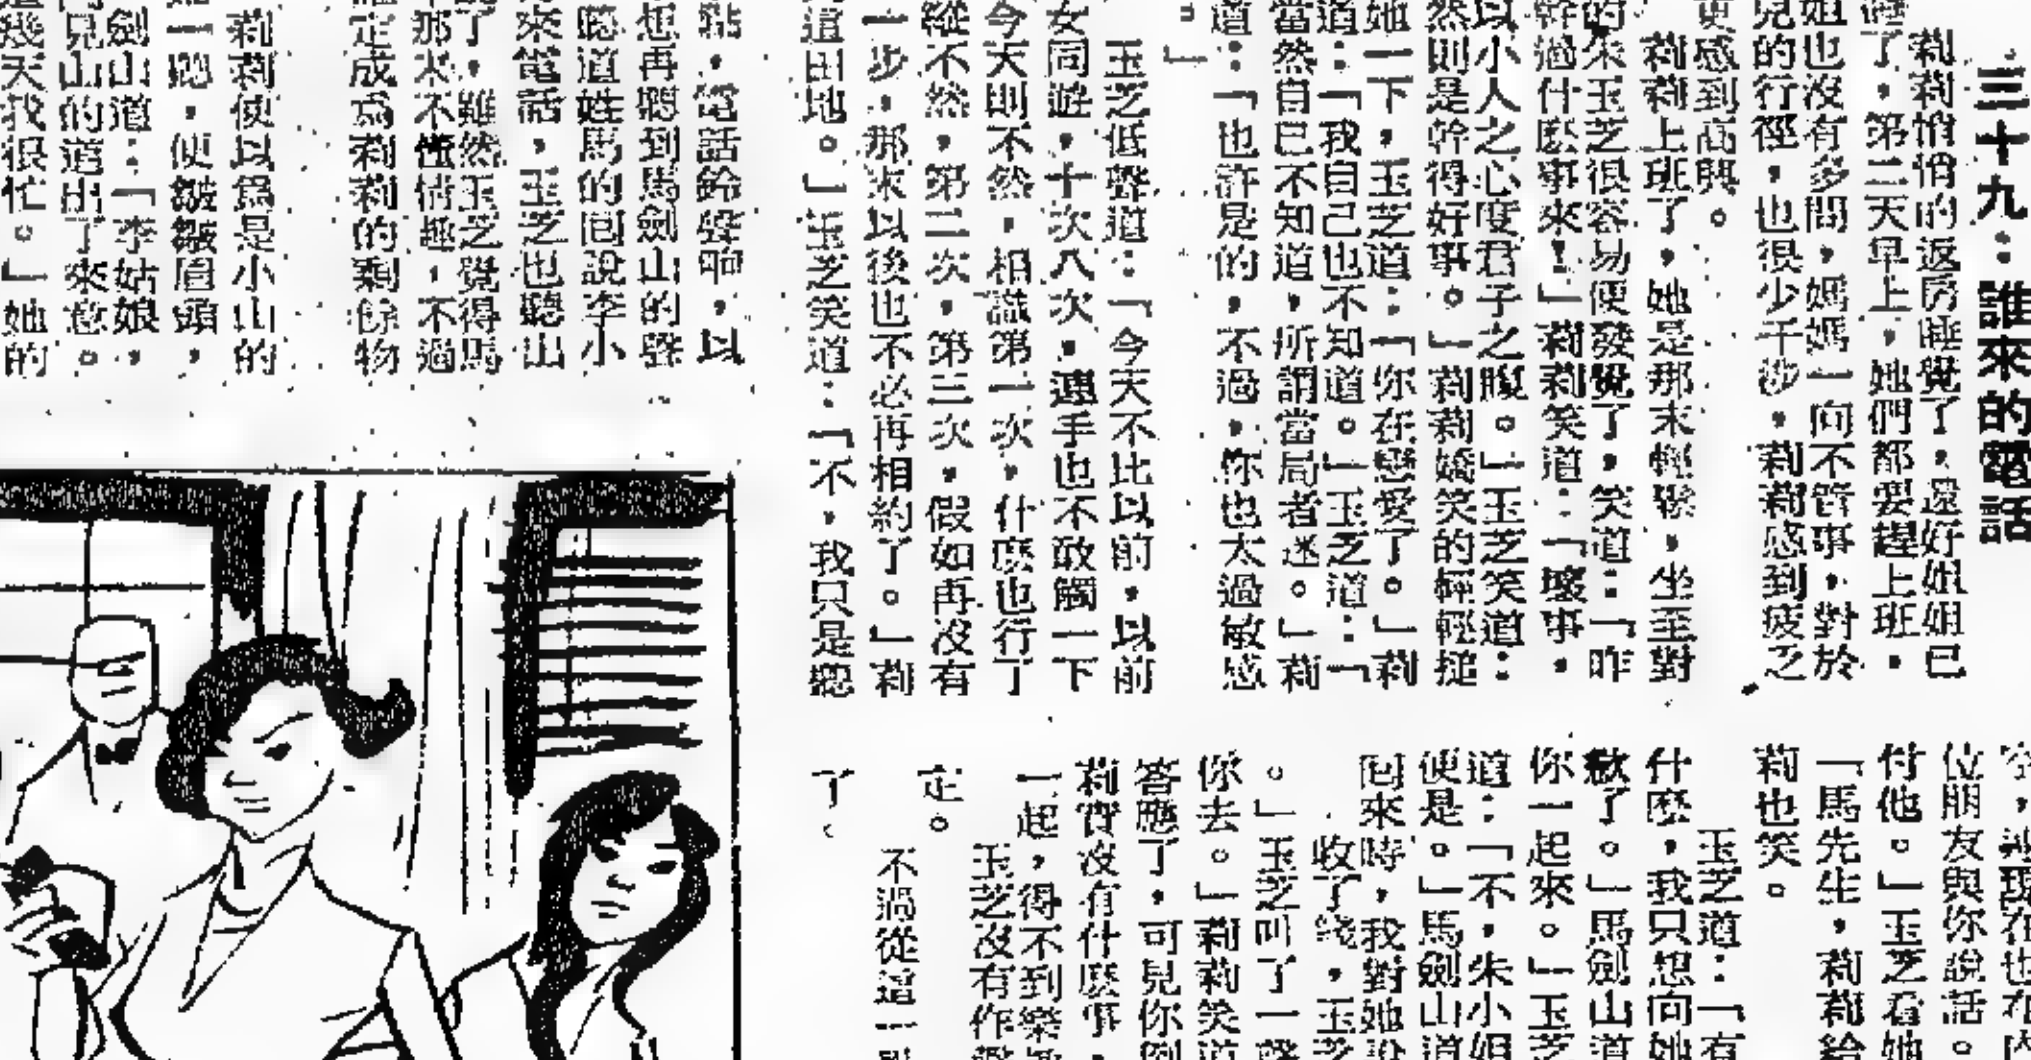 三十九：誰來的電話
莉莉悄悄的返房睡覺了，還好姐姐已
睡了，第二天早上，她們都要趕上班，
姐也沒有多問，媽媽一向不管事，對於
兒的行徑，也很少干涉，莉莉感到疲乏
更感到高興。
莉莉上班了，她是那末輕鬆，坐至對
的朱玉芝很容易便發覺了，笑道：「昨
幹過什麼事來！」莉莉笑道：「壞事，
以小人之心度君子之腹。」玉芝笑道：
然則是幹得好事。」莉莉嬌笑的輕輕搥
她一下，玉芝道：「你在戀愛了。」莉
道：「我自己也不知道。」玉芝道：「
當然自己不知道，所謂當局者迷。」莉
道：「也許是的，不過，你也太過敏感
。」
玉芝低聲道：「今天不比以前，以前
女同遊，十次八次，連手也不敢觸一下
今天則不然，相識第一次，什麼也行了
縱不然，第二次，第三次，假如再沒有
一步，那末以後也不必再相約了。」莉
這田地。」玉芝笑道：「不，我只是聽
點，電話鈴聲响，以
也再聽到馬劍山的聲
聽道姓馬的回說李小
來電話，玉芝也聽出
了，雖然玉芝覺得馬
那末不懂情趣，不過
定成爲莉莉的剩餘物
莉莉便以爲是小山的
一聽，便皺皺眉頭，
劍山道：「李姑娘，
見山的道出了來意。
幾天我很忙。」她的
在也在
位朋友與你說話。
付他。」玉芝看她
「馬先生，莉莉給
莉也笑。
玉芝道：「有
什麼，我只想向她
歉了。」馬劍山道
你一起來。」玉芝
道：「不，朱小姐
便是。」馬劍山道
回來時，我對她說
收了錢，玉芝
。」玉芝叫了一聲
你去。」莉莉笑道
答應了，可見你倒
莉實沒有什麼事，
一起，得不到樂
玉芝沒有作
定。
不過從這一
了。